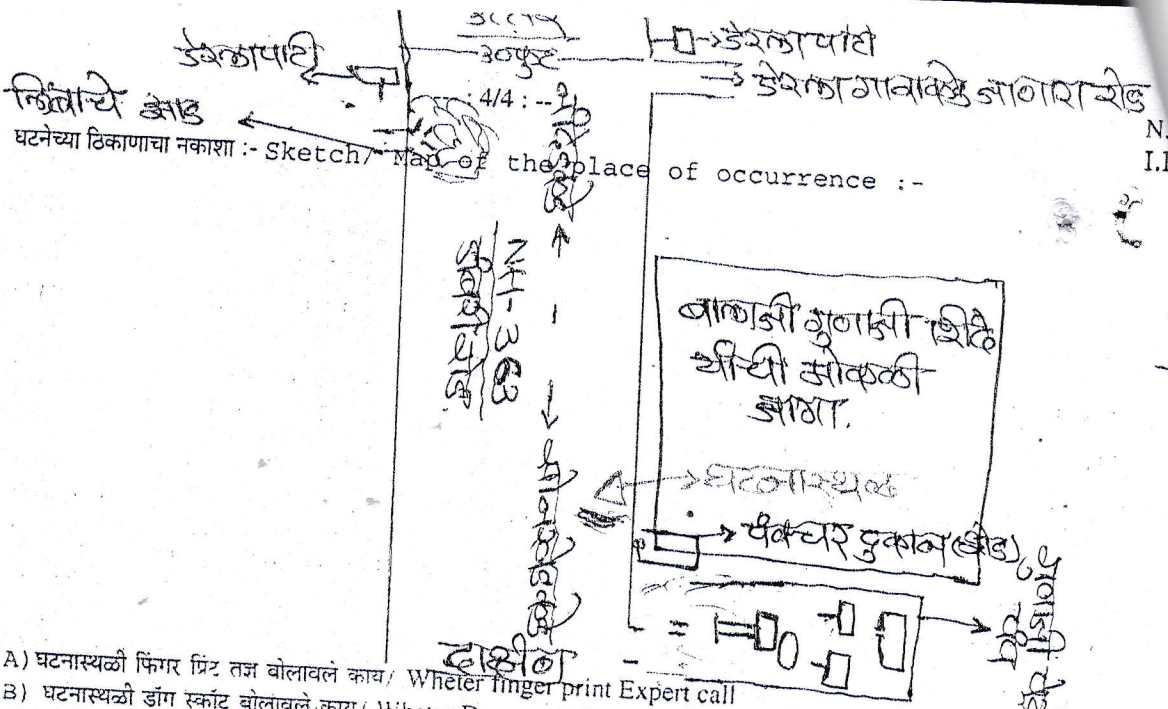 उत्तर
30 फुट
डेरलापाटी
डेरलापाटी
डेरला गावाकडे जाणारा रोड
लिंबाचे झाड
: 4/4 : --
घटनेच्या ठिकाणाचा नकाशा :- Sketch/ Map of the place of occurrence :-
N.
NH-363
बालाजी गुणाजी शिंदे
यांची मोकळी
जागा.
घटनास्थळ
पंक्चर दुकान (शेड)
दक्षिण
A) घटनास्थळी फिंगर प्रिंट तज्ञ बोलावले काय/ Wheter finger print Expert call
B) घटनास्थळी डॉग स्कॉट बोलावले काय/